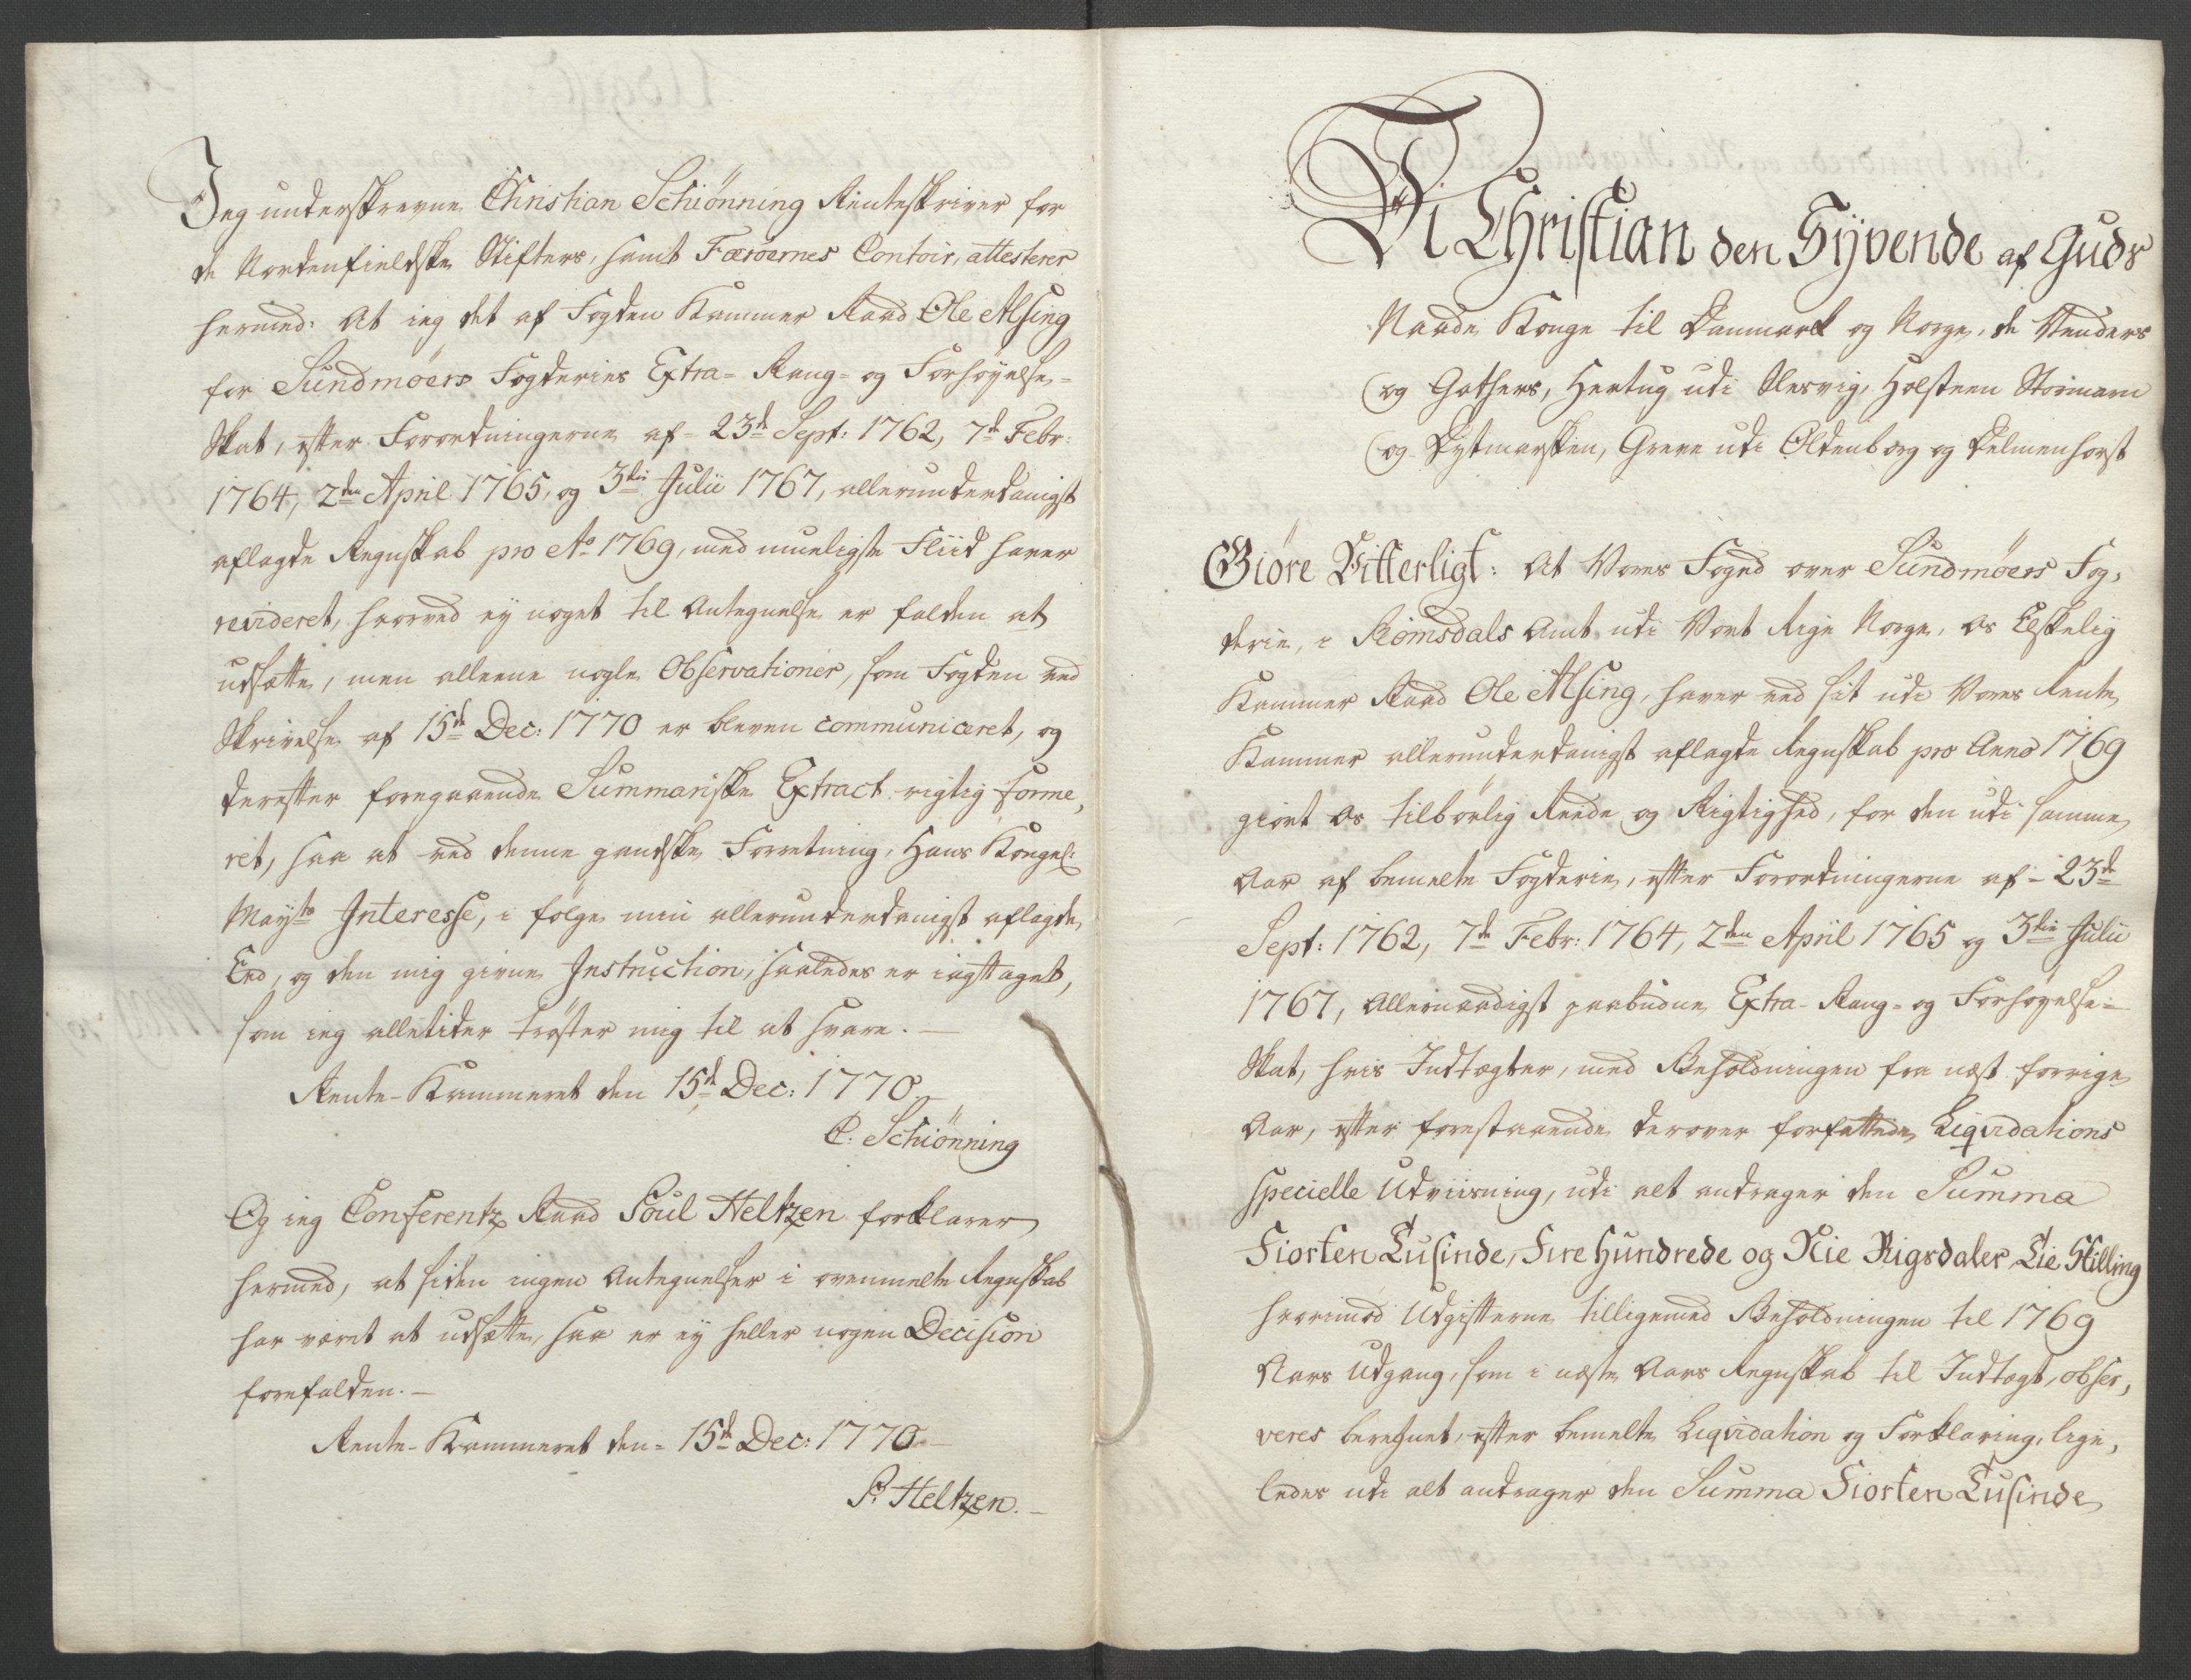 Jeg underskrevne Christian Schiönning Renteskriver for
de Nordenfieldske Stifters, samt Færöernes Contoir, attesterer
hermed: At ieg det af Fogden Kammer Raad Ole Alsing
for Sundmöers Fogderies Extra- Rang- og Forhøyelse-
Skat, efter Forordningerne af 23d Sept: 1762, 7d Febr:
1764, 2den April 1765, og 3die Julii 1767, allerunderdanigst
aflagde Regnskab pro Ao 1769, med mueligste Fliid haver
revideret, hvorved ey noget til Antegnelse er falden at
udsætte, men alleene nogle Observationer, som Fogden ved
Skrivelse af 15d Dec: 1770 er bleven communiceret, og
derefter foregaaende Summariske Extract rigtig forme,
ret, saa at ved denne gandske Forretning, Hans Kongel:
Mayts Interesse, i følge min allerunderdanigst aflagde
Eed, og den mig givne Instruction, saaledes er iagttaget,
som ieg alletider trøster mig til at svare. —
Rente-Kammeret den 15d Dec: 1770. —
C. Schiönning
Og ieg Conferentz Raad Poul Heltzen forklarer
hermed, at siden ingen Antegnelser i ovenmelte Regnskab
har været at udsætte, saa er ey heller nogen Decision
forefalden. —
Rente-Kammeret den 15d Dec: 1770 —
P. Heltzen. —
Vi Christian den Syvende af Guds
Naade Konge til Danmark og Norge, de Venders
og Gothers, Hertug udi Slesvig, Holsteen Stormarn
og Dytmarsken, Greve udi Oldenborg og Delmenhorst
Giöre Vitterligt: At Vores Foged over Sundmöers Fog,
derie, i Romsdals Amt udi Vort Rige Norge, Os Elskelig
Kammer Raad Ole Alsing, haver ved sit udi Vores Rente
Kammer allerunderdanigst aflagde Regnskab pro Anno 1769
giort Os tilbørlig Reede og Rigtighed, for den udi samme
Aar af bemelte Fogderie, efter Forordningerne af 23de
Sept: 1762, 7de Febr: 1764, 2den April 1765 og 3die Julii
1767, Allernaadigst paabudne Extra- Rang- og Forhøyelse-
Skat, hvis Indtægter, med Beholdningen fra næst forrige
Aar, efter forestaaende derover forfattede Liqvidations
specielle Udviisning, udi alt andrager den Summa
Fiorten Tusinde, Fire Hundrede og Nie Rigsdaler Tie Skilling
hvorimod Udgifterne tilligemed Beholdningen til 1769
Aars Udgang, som i næste Aars Regnskab til Indtægt, obser,
veres beregnet, efter bemelte Liqvidation og Forklaring, lige,
ledes udi alt andrager den Summa Fiorten Tusinde